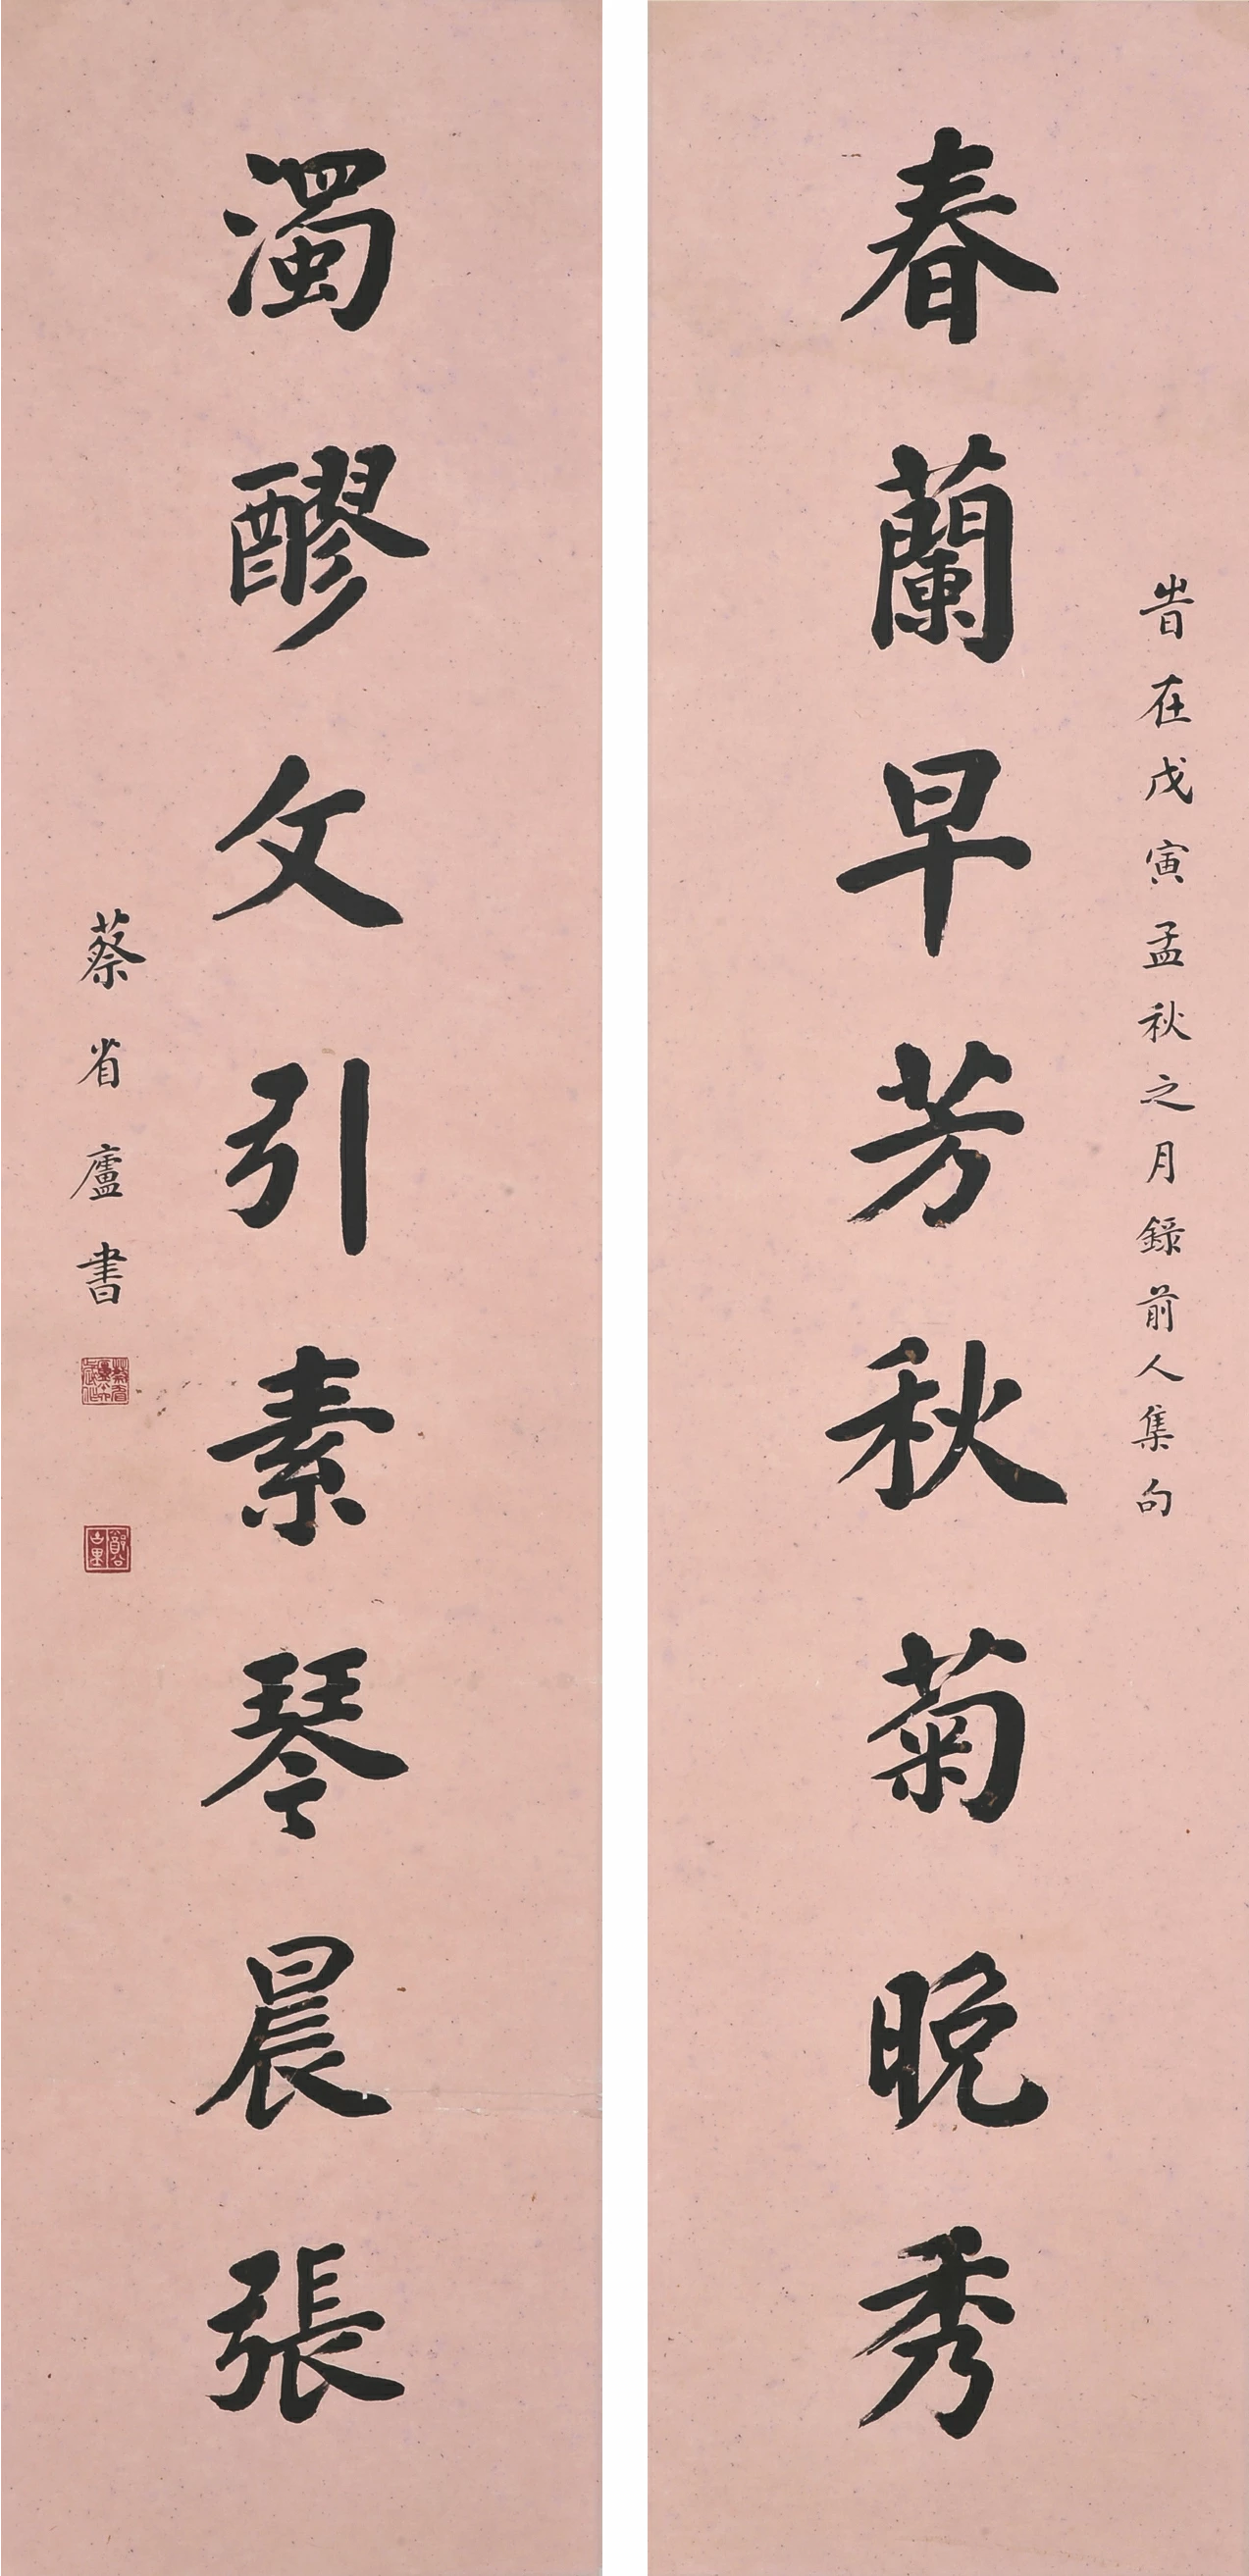 春蘭早芳秋菊晚秀
旹在戊寅孟秋之月錄前人集句
濁醪文引素琴晨張
蔡省廬書